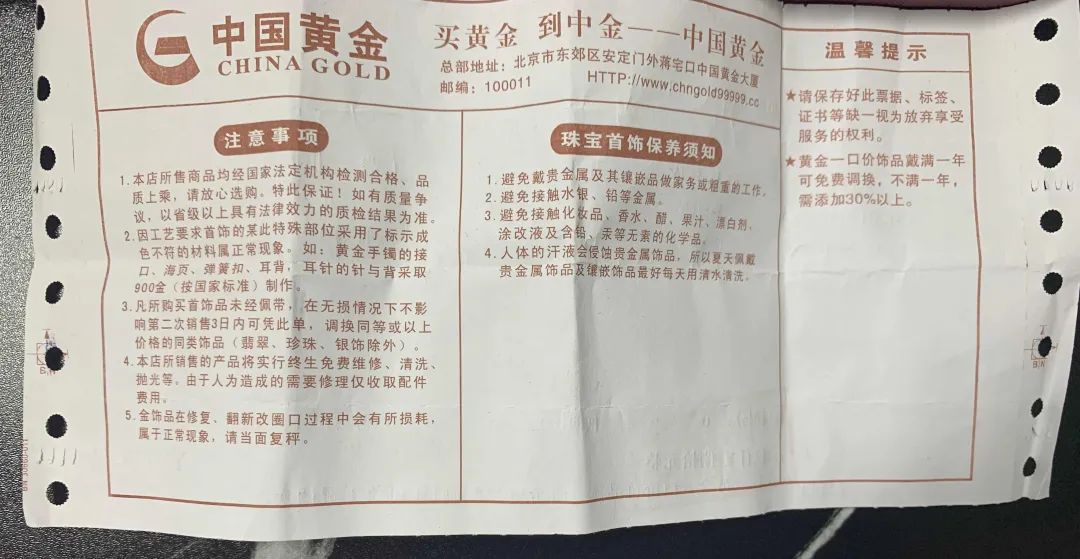 中国黄金
CHINA GOLD
买黄金 到中金——中国黄金
总部地址：北京市东郊区安定门外蒋宅口中国黄金大厦
邮编：100011 HTTP://www.chngold99999.cc
注意事项
1.本店所售商品均经国家法定机构检测合格、品
质上乘，请放心选购。特此保证！如有质量争
议，以省级以上具有法律效力的质检结果为准。
2.因工艺要求首饰的某此特殊部位采用了标示成
色不符的材料属正常现象。如：黄金手镯的接
口、海页、弹簧扣、耳背，耳针的针与背采取
900金（按国家标准）制作。
3.凡所购买首饰品未经佩带，在无损情况下不影
响第二次销售3日内可凭此单，调换同等或以上
价格的同类饰品（翡翠、珍珠、银饰除外）。
4.本店所销售的产品将实行终生免费维修、清洗、
抛光等。由于人为造成的需要修理仅收取配件
费用。
5.金饰品在修复、翻新改圈口过程中会有所损耗，
属于正常现象，请当面复秤。
珠宝首饰保养须知
1.避免戴贵金属及其镶嵌品做家务或粗重的工作。
2.避免接触水银、铅等金属。
3.避免接触化妆品、香水、醋、果汁、漂白剂、
涂改液及含铅、汞等无素的化学品。
4.人体的汗液会侵蚀贵金属饰品，所以夏天佩戴
贵金属饰品及镶嵌饰品最好每天用清水清洗。
温馨提示
★请保存好此票据、标签、
证书等缺一视为放弃享受
服务的权利。
★黄金一口价饰品戴满一年
可免费调换，不满一年，
需添加30%以上。